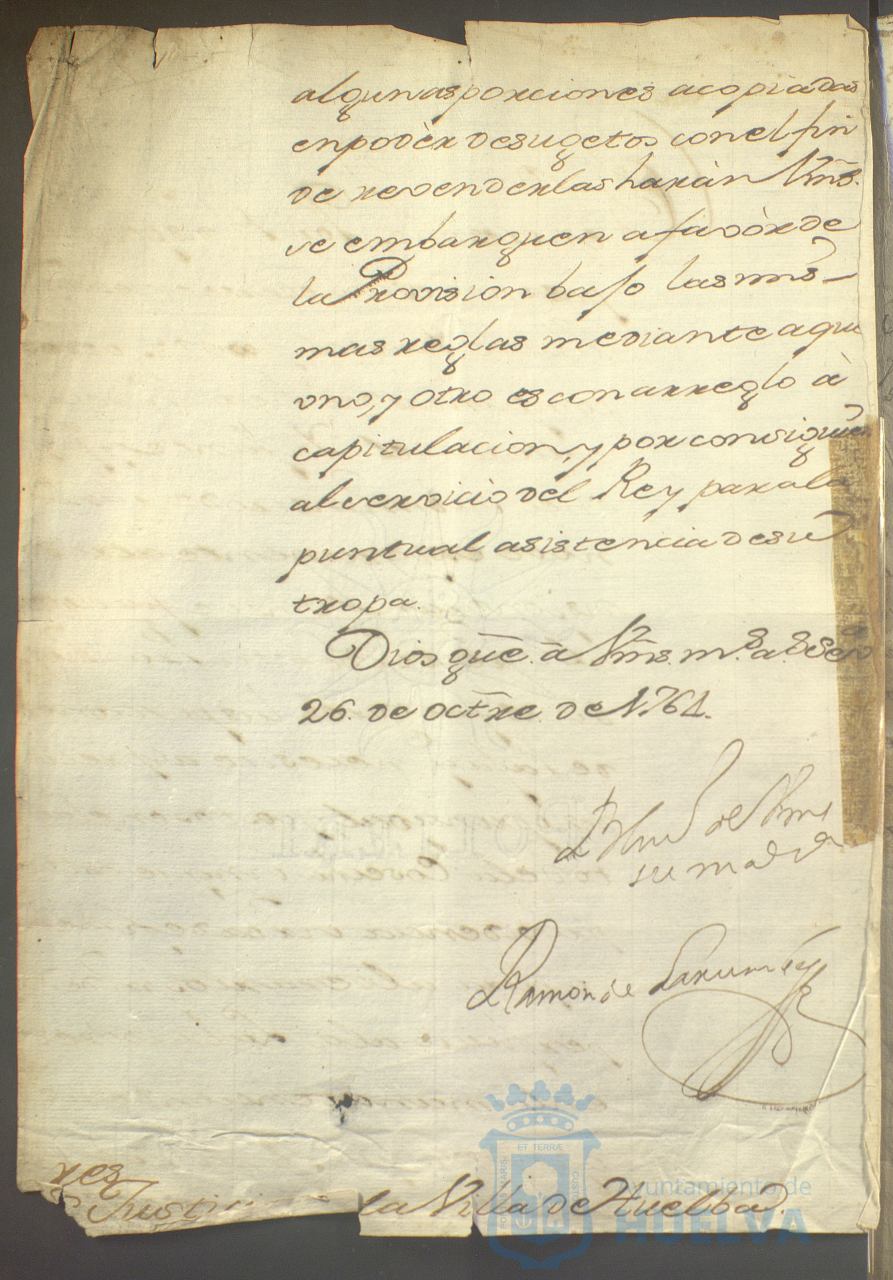 algunas porciones acopiadas
en podèr de sugetos con el fin
de revenderlas haràn Vm̃s.
se embarguen a favòr de
la Provision bajo las mis-
mas reglas mediante a que
vno, y otro es con arreglo à
capitulacion, y por consiguien
al servicio del Rey para la
puntual asistencia de su
tropa.
Dios gũe. à Vm̃s. m.s a.s
26. de Oct̃re. de 1761.
de Vms
su
Ramon de Larumbe
res
Justi la Villa de Huelba.
ET TERRÆ
Ayuntamiento de
HUELVA